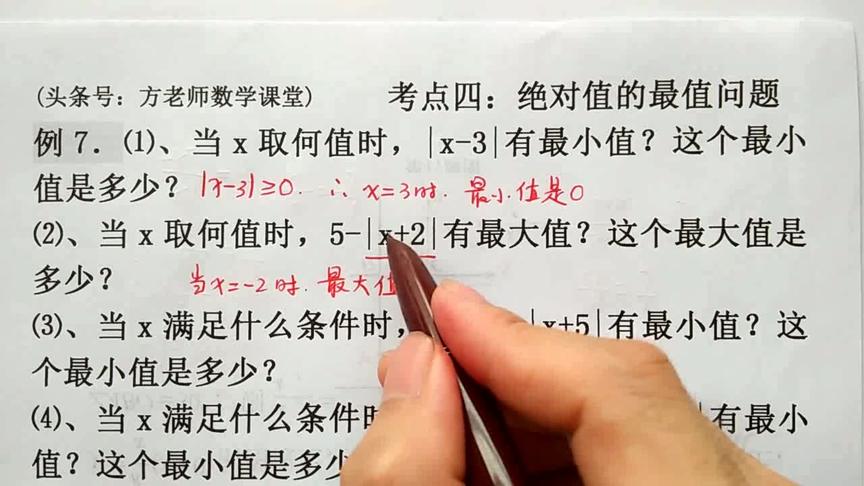 (头条号：方老师数学课堂) 考点四：绝对值的最值问题
例 7．⑴、当 x 取何值时，|x-3|有最小值？这个最小
值是多少？ |x-3|≥0. ∴ x=3时. 最小值是0
⑵、当 x 取何值时，5-|x+2|有最大值？这个最大值是
多少？ 当x=-2时. 最大值
⑶、当 x 满足什么条件时， |x+5|有最小值？这
个最小值是多少？
⑷、当 x 满足什么条件 有最小
值？这个最小值是多